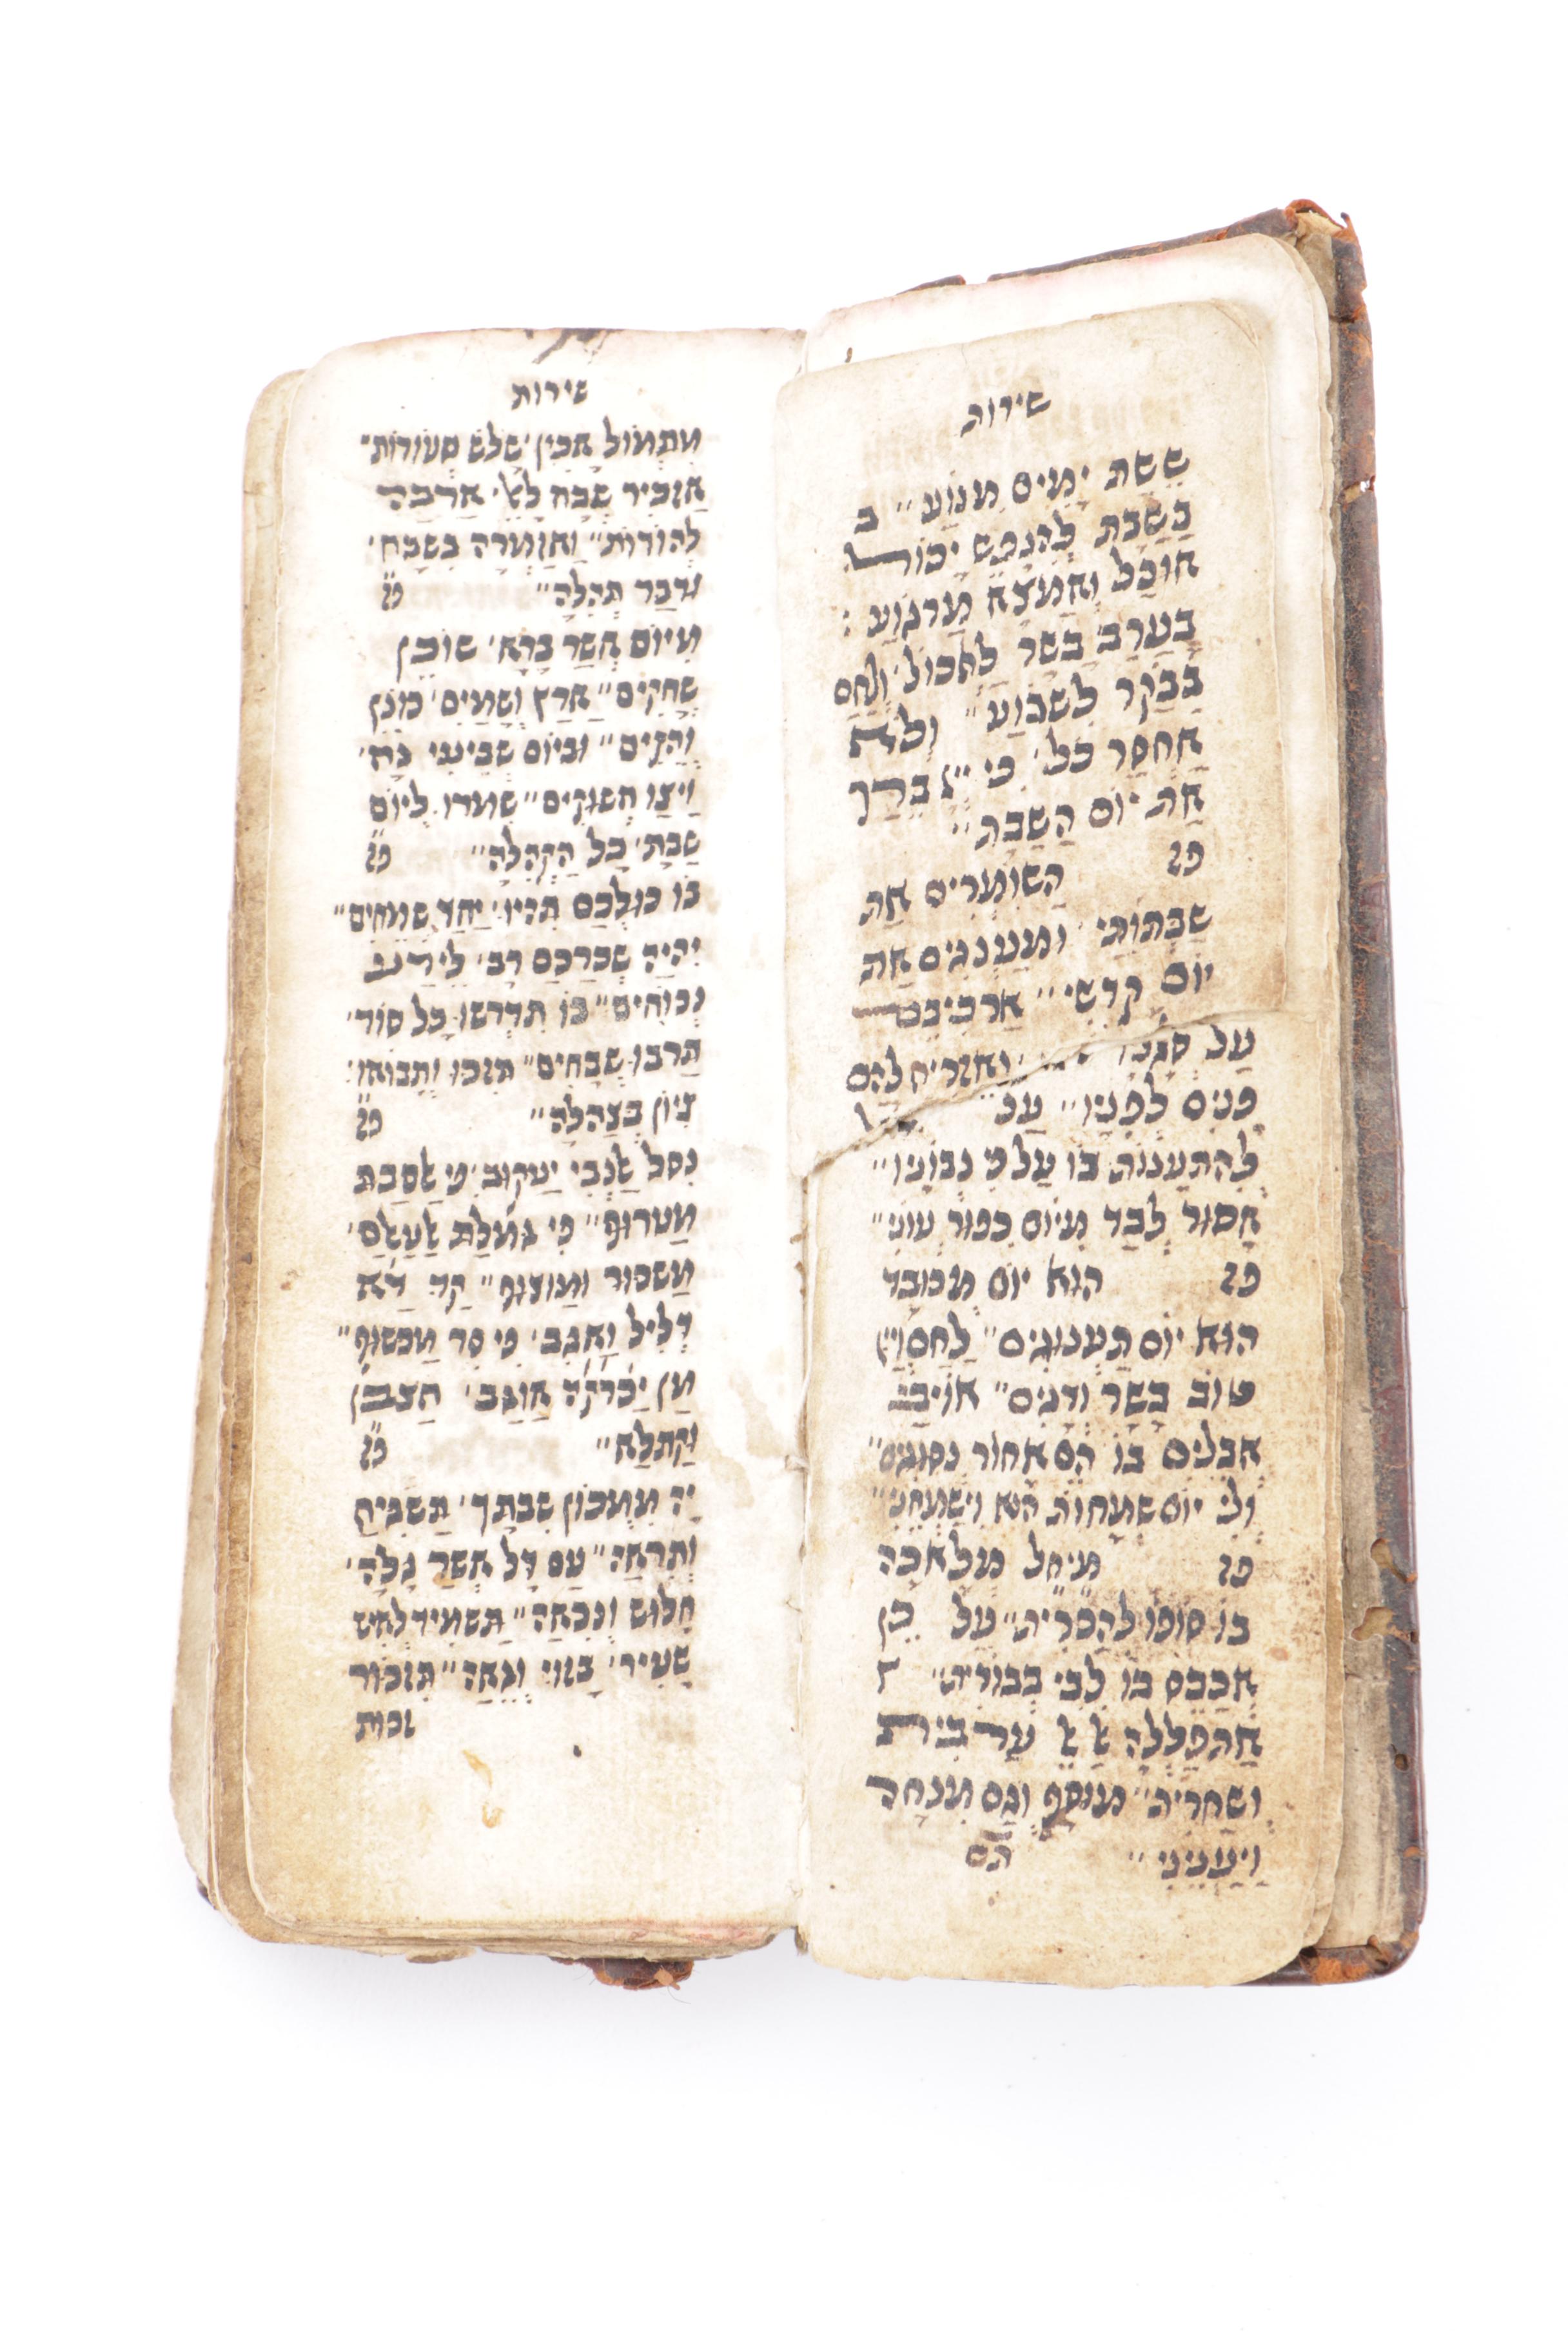 שירות
שֵׁשֶׁת יָמִים מְנוֹעַ״ ב
בְּשַׁבָּת לְהִנָּפֵשׁ יָכוֹל
אוּכַל וְאֶמְצָא מַרְגּוֹעַ :
בָּעֶרֶב בָּשָׂר לֶאֱכוֹל׳ וְלֶחֶם
בַּבֹּקֶר לִשְׂבּוֹעַ״ וְלֹא
אֶחְסַר כֹּל׳ כִּי יְ״יָ בֵּרַךְ
אֶת יוֹם הַשַּׁבָּת״
פז הַשּׁוֹמְרִים אֶת
שַׁבְּתוֹתַי וּמְעַנְּגִים אֶת
יוֹם קָדְשִׁי״ אַרְכִּיבֵם
עַל וְאַזְרִיחַ לָהֶם
פָּנִים לְפָנָיו״
לְהִתְעַנּוֹת בּוֹ עַל פִּי נְבוֹנָיו״
אָסוּר לְבַד מִיּוֹם כִּפּוּר עֲוֹנִי״
פז הוּא יוֹם מְכוּבָּד
הוּא יוֹם תַּעֲנוּגִים״ לֶחֶם וְיַיִן
טוֹב בָּשָׂר וְדָגִים״
אֲבֵלִים בּוֹ הֵם אָחוֹר נְסוֹגִים״
וְלִי יוֹם שְׂמָחוֹת הוּא וִישַׂמְּחֵנִי״
פז מֵיחֵל מְלָאכָה
בּוֹ סוֹפוֹ לְהַכְרִית״ עַל כֵּן
אֲכַבֵּס בּוֹ לִבִּי כְּבוֹרִית״
אֶתְפַּלְלָה אֶל אֵל עַרְבִית
וְשַׁחֲרִית״ מוּסָף וְגַם מִנְחָה
וְיַעֲנֵינִי״ תם
שירות
מֵתְמוֹל אָכִין׳ שָׁלֹשׁ סְעוּדוֹת״
אַזְכִּיר שֶׁבַח לָאֵל׳ אַרְבֶּה
לְהוֹדוֹת״ וַאֲזַמְּרָה בְשֶׁבַח׳
וּדְבַר תְּהִלָּה״ פז
מִיּוֹם אֲשֶׁר בָּרָא׳ שׁוֹכֵן
שְׁחָקִים״ אֶרֶץ וְשָׁמַיִם׳ כּוֹנֵן
וְהֵקִים״ וּבְיוֹם שְׁבִיעִי נָח׳
וַיְצַו חֲשׁוּקִים״ שִׁמְרוּ לְיוֹם
שַׁבָּת׳ כָּל הַקְּהִלָּה״ פז
בּוֹ כּוּלְכֶם תִּהְיוּ׳ יַחַד שְׂמֵחִים״
יִהְיֶה שְׂכַרְכֶם רָב׳
נְכוֹחִים״ בּוֹ תִּדְרְשׁוּ כָּל סוֹד׳
תַּרְבּוּ שְׁבָחִים״ תִּזְכּוּ וְתָבוֹאוּ
צִיּוֹן בְּצָהֳלָה״ פז
נסל אלנבי יַעֲקוּב׳ פי אלסבת
מַערוּף״ פי
וּמַוצוּף״
דליל ואגב׳ פי סר מַכשוּף״
מַן
וַקַתלַא״ פז
יָהּ מִמְּכוֹן שִׁבְתְּךָ׳ תַּשְׁגִּיחַ
וְתִרְאֶה״ עַם דַּל אֲשֶׁר גָּלָה׳
חָלוּשׁ וְנִכְאֶה״ תַּשְׁמִיד לְאִישׁ
שֵׂעִיר׳ בָּזוּי וְגֵאֶה״ תִּזְכּוֹר
זכות